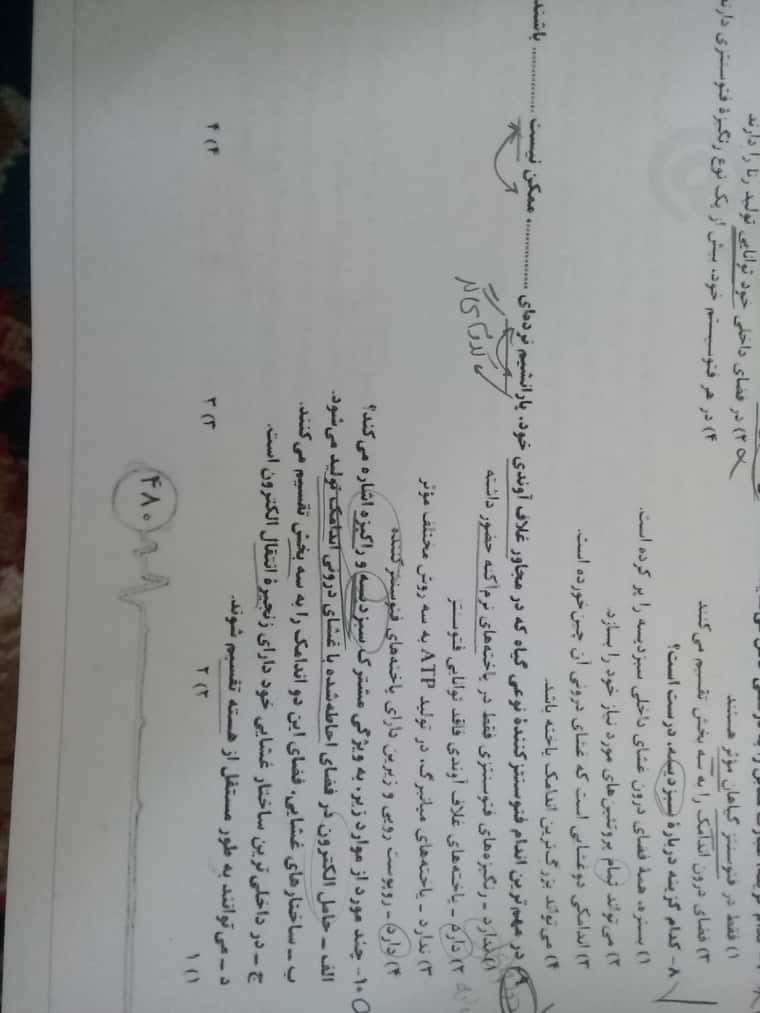 ۲) در فضای داخلی خود توانایی تولید رنا را دارند
۱) فقط در فتوسنتز گیاهان مؤثر هستند
۴) در هر فتوسیستم خود، بیش از یک نوع رنگیزهٔ فتوسنتزی دارند
۳) فضای درون اندامک را به سه بخش تقسیم می‌کنند
۸- کدام گزینه دربارهٔ سبزدیسه، درست است؟
۱) بستره، همهٔ فضای درون غشای داخلی سبزدیسه را پر کرده است.
۲) می‌تواند تمام پروتئین‌های مورد نیاز خود را بسازد.
۳) اندامکی دوغشایی است که غشای درونی آن چین‌خورده است.
۴) می‌تواند بزرگ‌ترین اندامک یاخته باشد.
۹- در مهم‌ترین اندام فتوسنتزکنندهٔ نوعی گیاه که در مجاور غلاف آوندی خود، پارانشیم نرده‌ای .............. ممکن نیست .............. باشند
۱) ندارد - رنگیزه‌های فتوسنتزی فقط در یاخته‌های نرم‌آکنه حضور داشته
۲) دارد - یاخته‌های غلاف آوندی فاقد توانایی فتوسنتز
۳) ندارد - یاخته‌های میانبرگ، در تولید ATP به سه روش مختلف مؤثر
۴) دارد - روپوست رویی و زیرین دارای یاخته‌های فتوسنتزکننده
۱۰- چند مورد از موارد زیر، به ویژگی مشترک سبزدیسه و راکیزه اشاره می‌کند؟
الف - حامل الکترون در فضای احاطه‌شده با غشای درونی اندامک تولید می‌شود.
ب - ساختارهای غشایی، فضای این دو اندامک را به سه بخش تقسیم می‌کنند.
ج - در داخلی‌ترین ساختار غشایی خود دارای زنجیرهٔ انتقال الکترون است.
د - می‌توانند به طور مستقل از هسته تقسیم شوند.
۱) ۱ ۲) ۲ ۳) ۳ ۴) ۴
۴۸۰